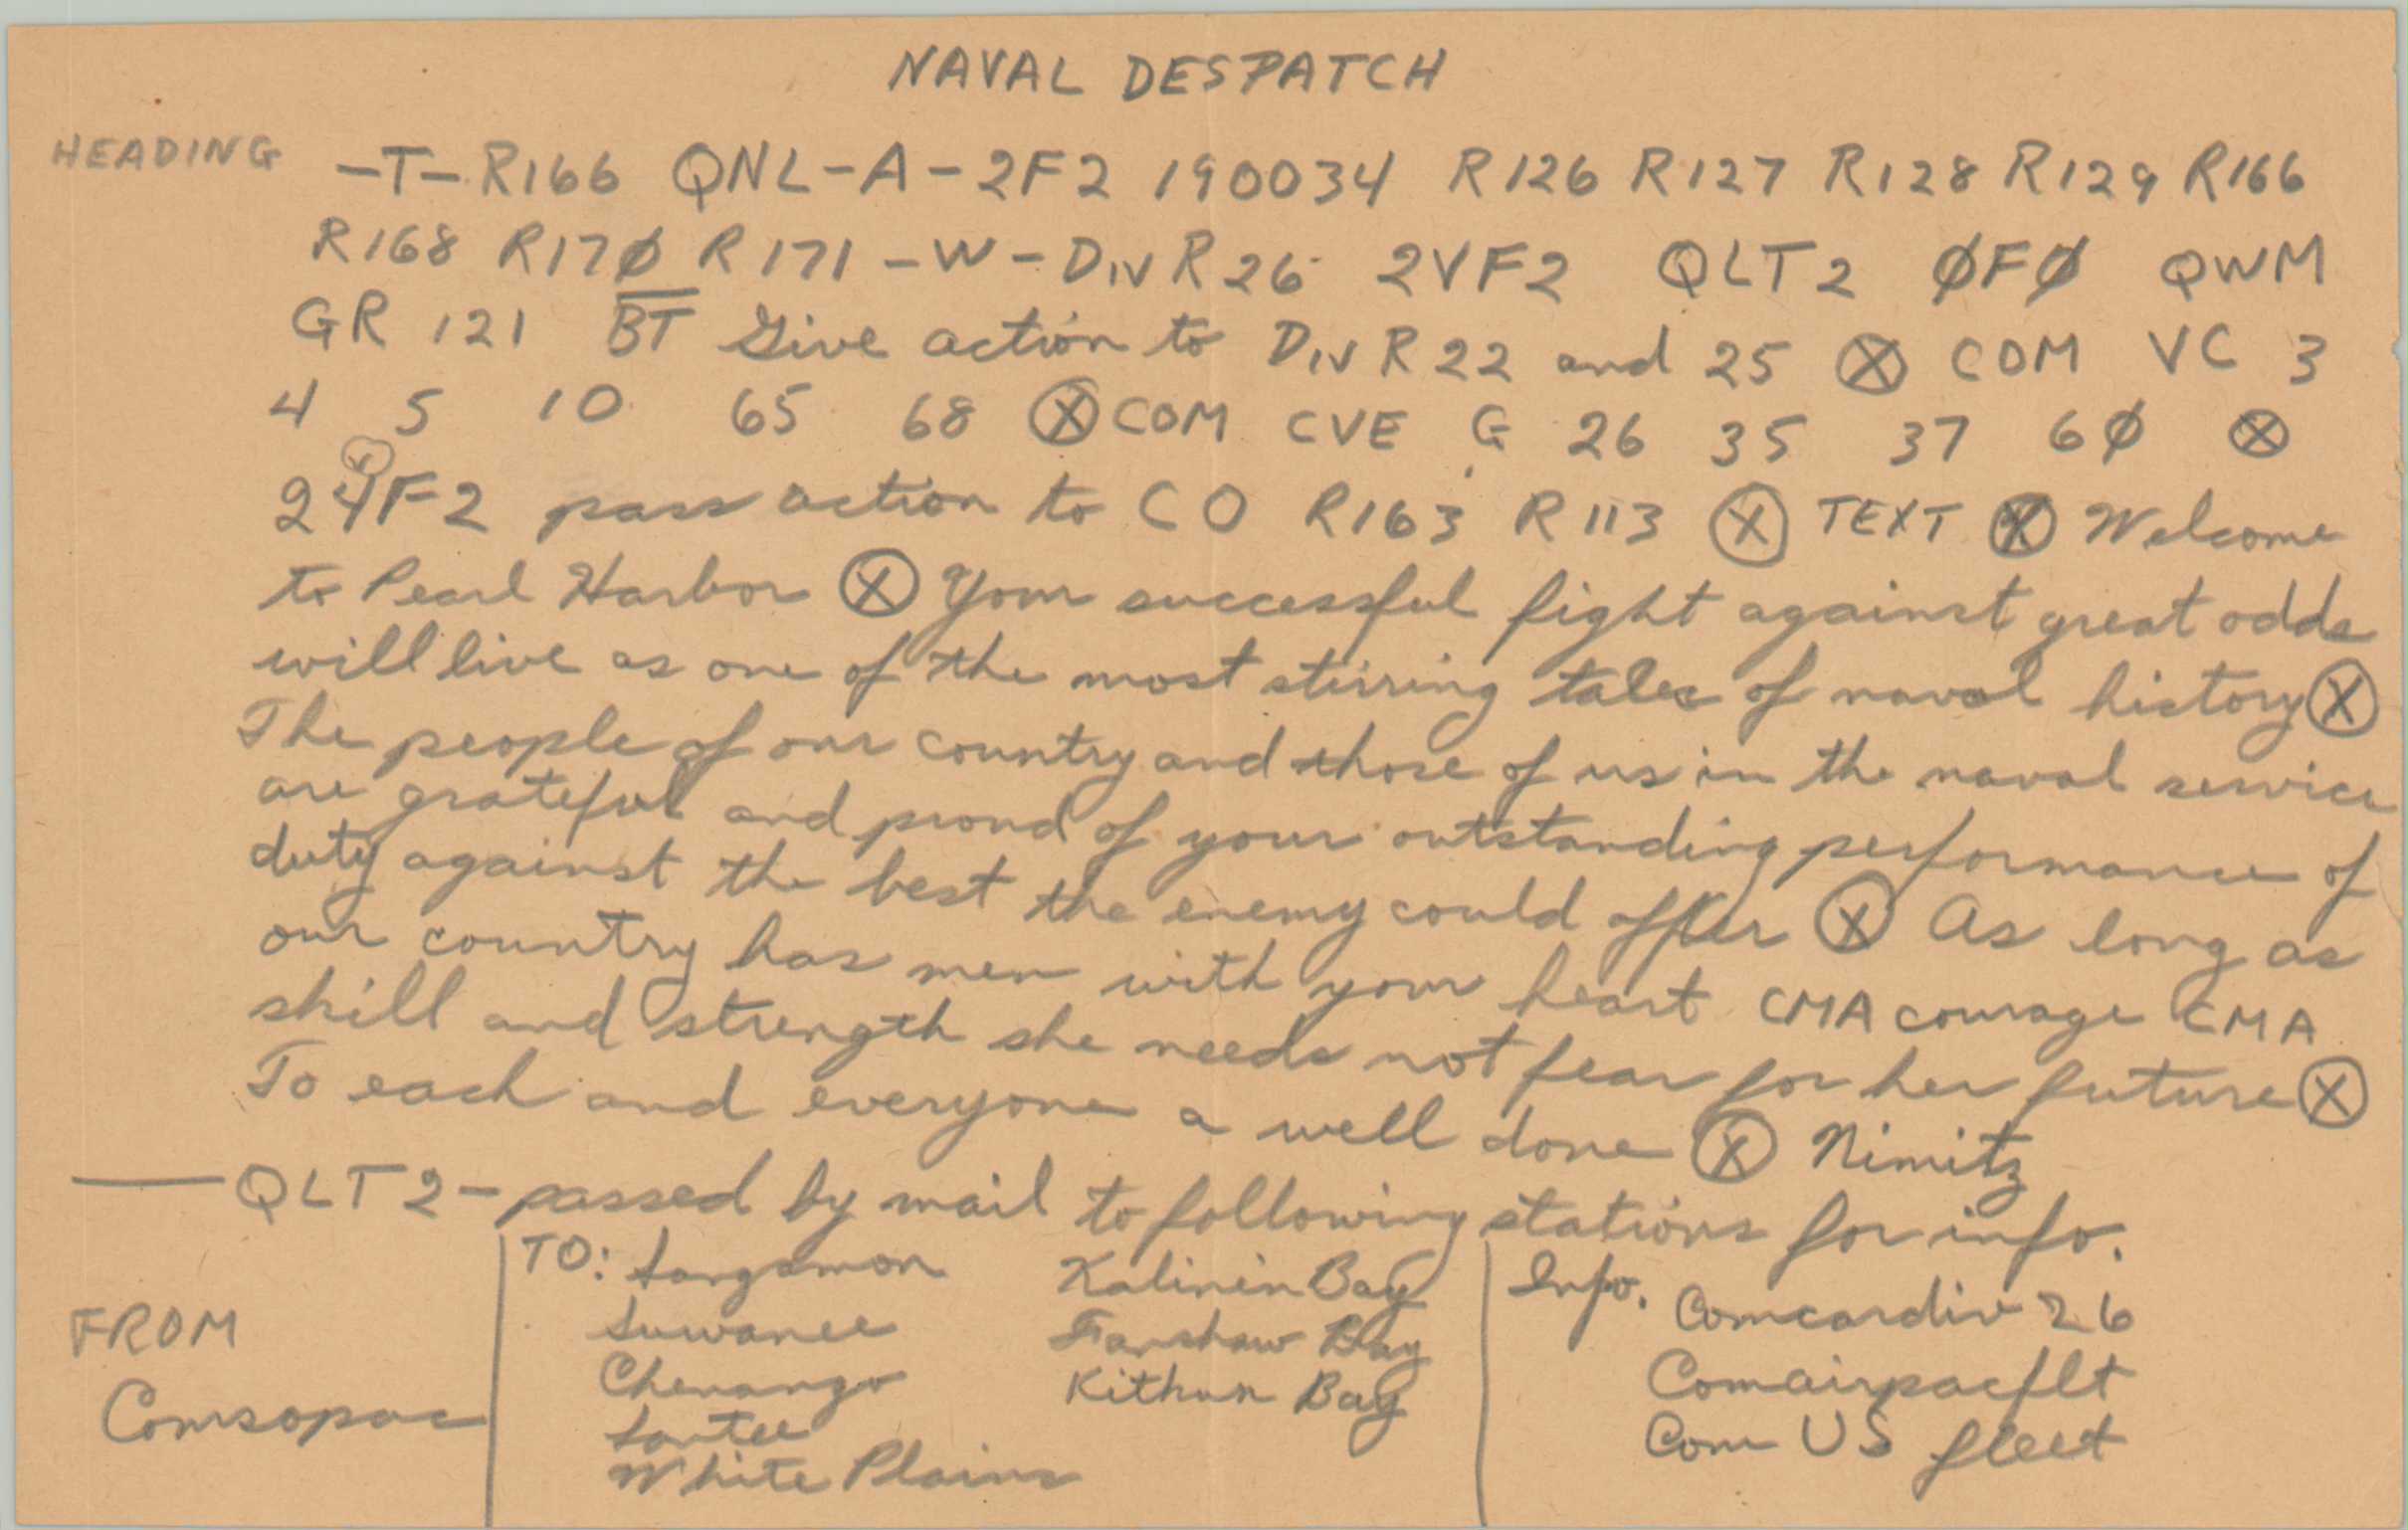 NAVAL DESPATCH
HEADING -T- R166 QNL-A-2F2 190034 R126 R127 R128 R129 R166
R168 R17Ø R171 -W- DIV R26 2VF2 QLT2 ØFØ QWM
GR 121 BT Give action to DIV R22 and 25 ⓧ COM VC 3
4 5 10 65 68 ⓧ COM CVE G 26 35 37 6Ø ⓧ
24F2 pass action to CO R163 R113 ⓧ TEXT ⓧ Welcome
to Pearl Harbor ⓧ Your successful fight against great odds
will live as one of the most stirring tales of naval history ⓧ
The people of our country and those of us in the naval service
are grateful and proud of your outstanding performance of
duty against the best the enemy could offer ⓧ As long as
our country has men with your heart CMA courage CMA
skill and strength she needs not fear for her future ⓧ
To each and everyone a well done ⓧ Nimitz
— QLT2 - passed by mail to following stations for info.
FROM
Comsopac
TO: Sangamon
Suwanee
Chenango
Santee
White Plains
Kalinin Bay
Fanshaw Bay
Kitkun Bay
Info. Comcardiv 26
Comairpacflt
Com US fleet